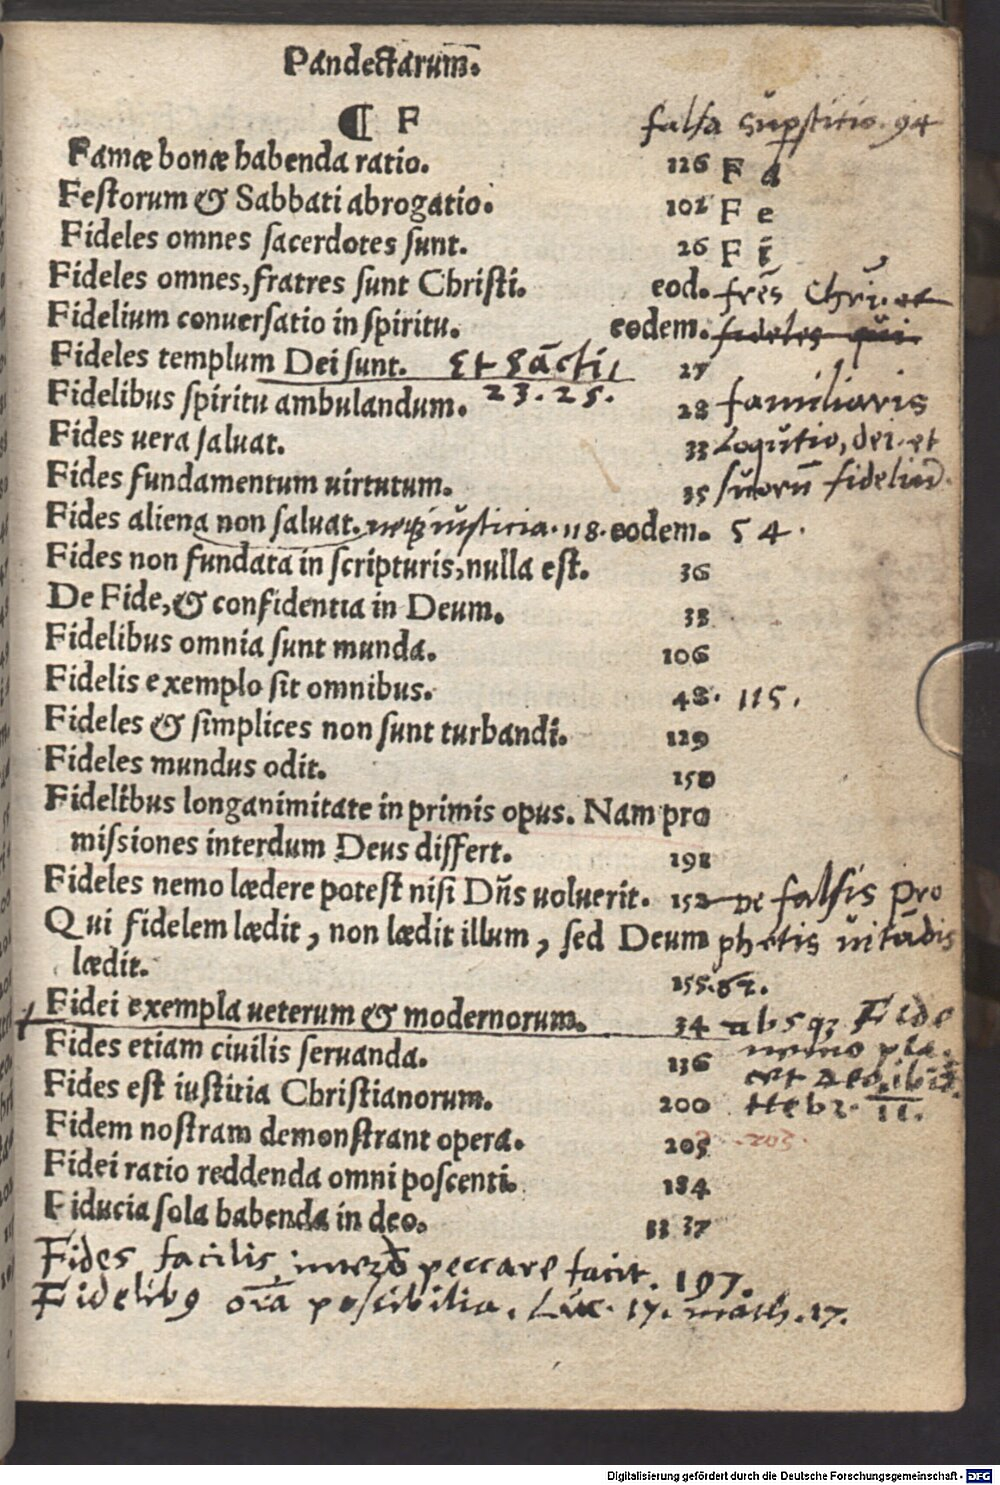 Pandectarum̄.
¶ F
falsa sup̱stitio. 94
Famæ bonæ habenda ratio. 126 F a
Festorum & Sabbati abrogatio. 102 F e
Fideles omnes sacerdotes sunt. 26 F i
Fideles omnes, fratres sunt Christi. eod. frēs Chri. et
Fidelium conuersatio in spiritu. eodem. fideles qui
Fideles templum Dei sunt. Et Sācti 27
23. 25.
Fidelibus spiritu ambulandum. 28 familiaris
Fides uera saluat. 33 Loqutio, dei et
Fides fundamentum uirtutum. 35 suorū fideliū.
Fides aliena non saluat. neq; iusticia. 118. eodem. 54.
Fides non fundata in scripturis, nulla est. 36
De Fide, & confidentia in Deum. 38
Fidelibus omnia sunt munda. 106
Fidelis exemplo sit omnibus. 48. 115.
Fideles & simplices non sunt turbandi. 129
Fideles mundus odit. 150
Fidelibus longanimitate in primis opus. Nam pro
missiones interdum Deus differt. 198
Fideles nemo lædere potest nisi Dn̄s uoluerit. 152 De falsis pro
Qui fidelem lædit, non lædit illum, sed Deum phetis uitādis
lædit. 155. 62.
Fidei exempla ueterum & modernorum. 34 absq; Fide
Fides etiam ciuilis seruanda. 136 nemo pla.
cet
Fides est iustitia Christianorum. 200 Hebr. 11.
Fidem nostram demonstrant opera. 205 205.
Fidei ratio reddenda omni poscenti. 184
Fiducia sola habenda in deo. 33 37
Fides facilis, peccare facit. 197.
Fidelibꝯ oīa possibilia. Luc. 17. math. 17.
Digitalisierung gefördert durch die Deutsche Forschungsgemeinschaft - DFG